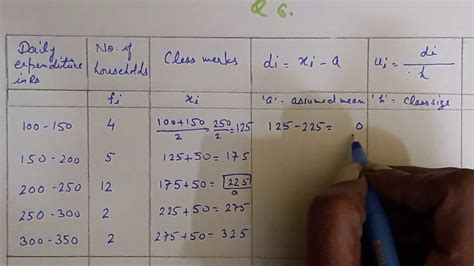 & 6.
Daily expenditure in Rs | No. of households | Class marks | di = xi - a | ui = di / h
fi | xi | 'a' = assumed mean | 'h' = class size
100-150 | 4 | 100+150/2 250/2 = 125 | 125-225 = 0
150-200 | 5 | 125+50 = 175
200-250 | 12 | 175+50 = 225 a
250-300 | 2 | 225+50 = 275
300-350 | 2 | 275+50 = 325